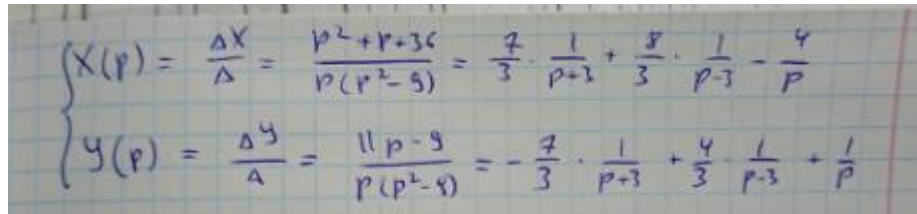 X(p) = ΔX/Δ = (p²+p+36)/(p(p²-9)) = 7/3 · 1/(p+3) + 8/3 · 1/(p-3) - 4/p
y(p) = Δy/Δ = (11p-9)/(p(p²-9)) = -7/3 · 1/(p+3) + 4/3 · 1/(p-3) + 1/p